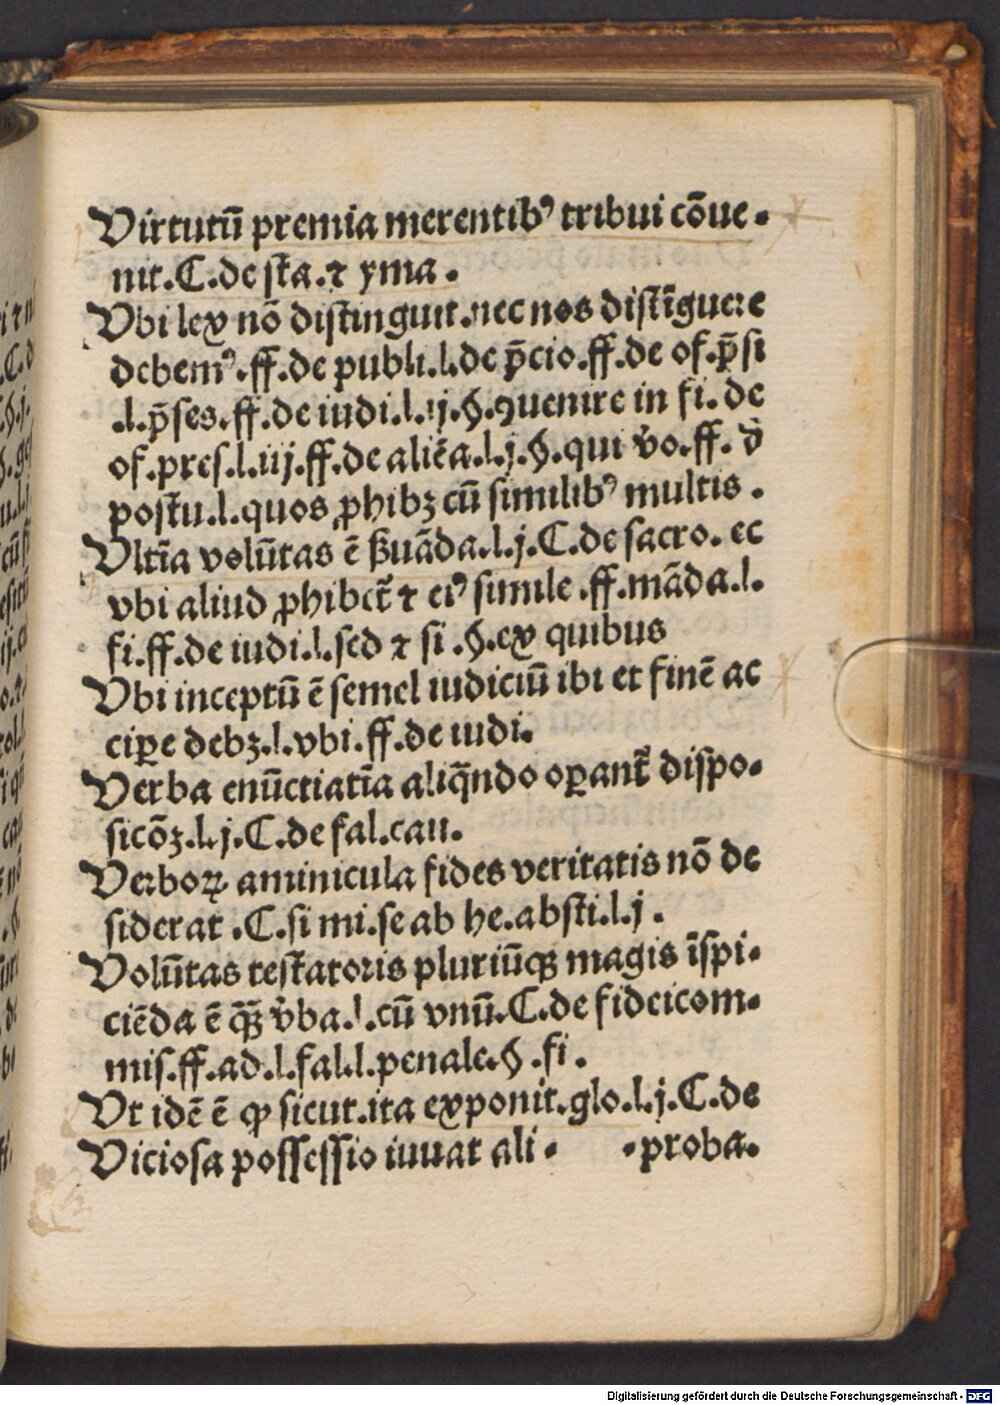 Virtutū premia merentibꝰ tribui cōue⸗
nit.C.de sta.⁊ yma.
Vbi lex nō distinguit.nec nos distīguere
debemꝰ.ff.de publi.l.de p̄cio.ff.de of.p̄si
.l.p̄ses.ff.de iudi.l.ij.§.ꝯuenire in fi.de
of.pres.l.iij.ff.de aliēa.l.j.§.qui v̄o.ff.d̄
postu.l.quos ꝓhibꝫ cū similibꝰ multis.
Vltīa volūtas ē ẜuāda.l.j.C.de sacro.ec
vbi aliud ꝓhibet̄ ⁊ eiꝰ simile.ff.māda.l.
fi.ff.de iudi.l.sed ⁊ si.§.ex quibus
Vbi inceptū ē semel iudiciū ibi et finē ac
ciꝑe debꝫ.l.vbi.ff.de iudi.
Verba enūctiatīa aliq̄ndo oꝑant̄ dispo⸗
sicōꝫ.l.j.C.de fal.cau.
Verboꝝ aminicula fides veritatis nō de
siderat.C.si mi.se ab he.absti.l.j.
Volūtas testatoris pluriūqꝫ magis īspi⸗
ciēda ē qꝫ̄ v̄ba.l.cū vnū.C.de fideicom⸗
mis.ff.ad.l.fal.l.penale.§.fi.
Vt idē ē ꝙ sicut.ita exponit.glo.l.j.C.de
Viciosa possessio iuuat ali⸗ ⸗proba.
Digitalisierung gefördert durch die Deutsche Forschungsgemeinschaft - DFG